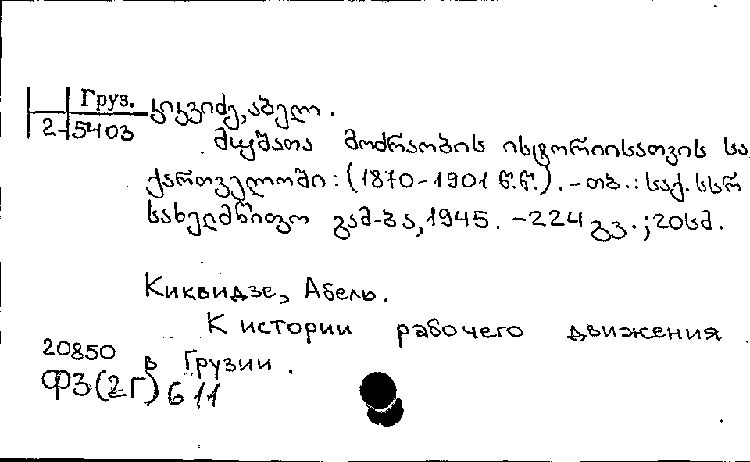 Груз. კიკვიძე, აბელ.
2-5403
მუშათა მოძრაობის ისტორიისათვის სა
ქართველოში: (1870-1901 წ.წ.). - თბ.: საქ. სსრ
სახელმწიფო გამ-ბა, 1945. - 224 გვ.; 20სმ.
Киквидзе, Абель.
К истории рабочего движения
20850 в Грузии.
ФЗ(2Г)611